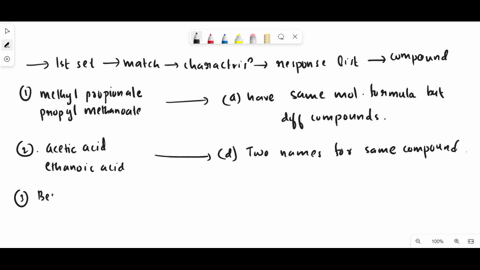 → 1st set → match → charactris? → response list → compound
① methyl propionate → (a) have same mol. formula but
propyl methanoate diff compounds.
② . acetic acid → (d) Two names for same compound.
ethanoic acid
③ Be
100%